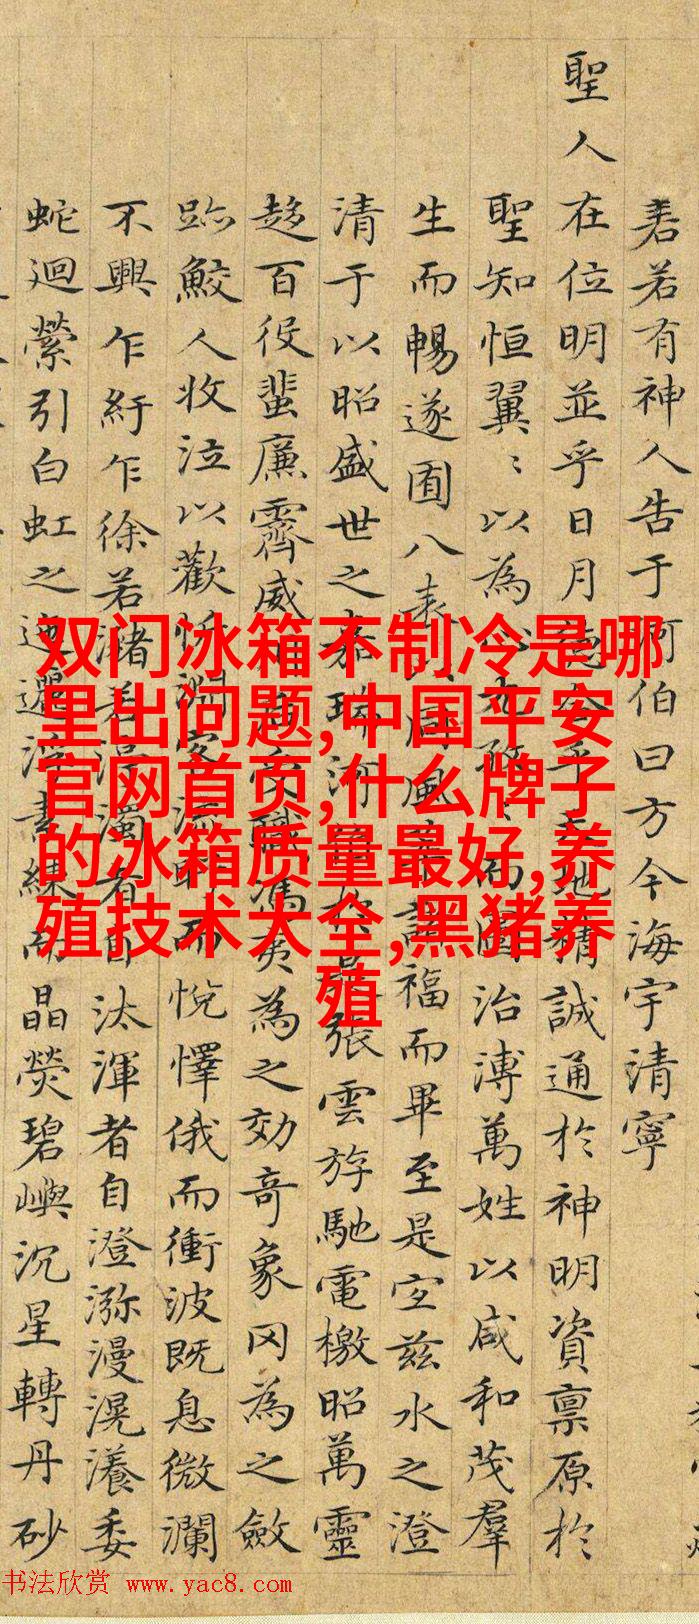 若有神人告于河伯曰方今海宇清寧
聖人在位明並乎日月合乎地精誠通於神明資稟原於
聖知恒翼〻以為心而圖治溥萬姓以咸和茂羣
生而暢遂囿八表同風諸福而畢至是宜兹水之澄
清于以昭盛世之嘉瑞河張雲斿馳電檄昭萬靈
趍百役蜚廉霽威職馮夷為之効奇象罔為之斂
跡鮫人收泣以歡忭淵客流而悅懌俄而衝波既息微瀾
不興乍紆乍徐若瀦若渟濁者自汰渾者自澄瀰漫滉瀁委
蛇迴縈引白虹之迤邐浮素練而晶熒碧嶼沉星轉丹砂
双门冰箱不制冷是哪
里出问题,中国平安
官网首页,什么牌子
的冰箱质量最好,养
殖技术大全,黑猪养
殖
书法欣赏 www.yac8.com